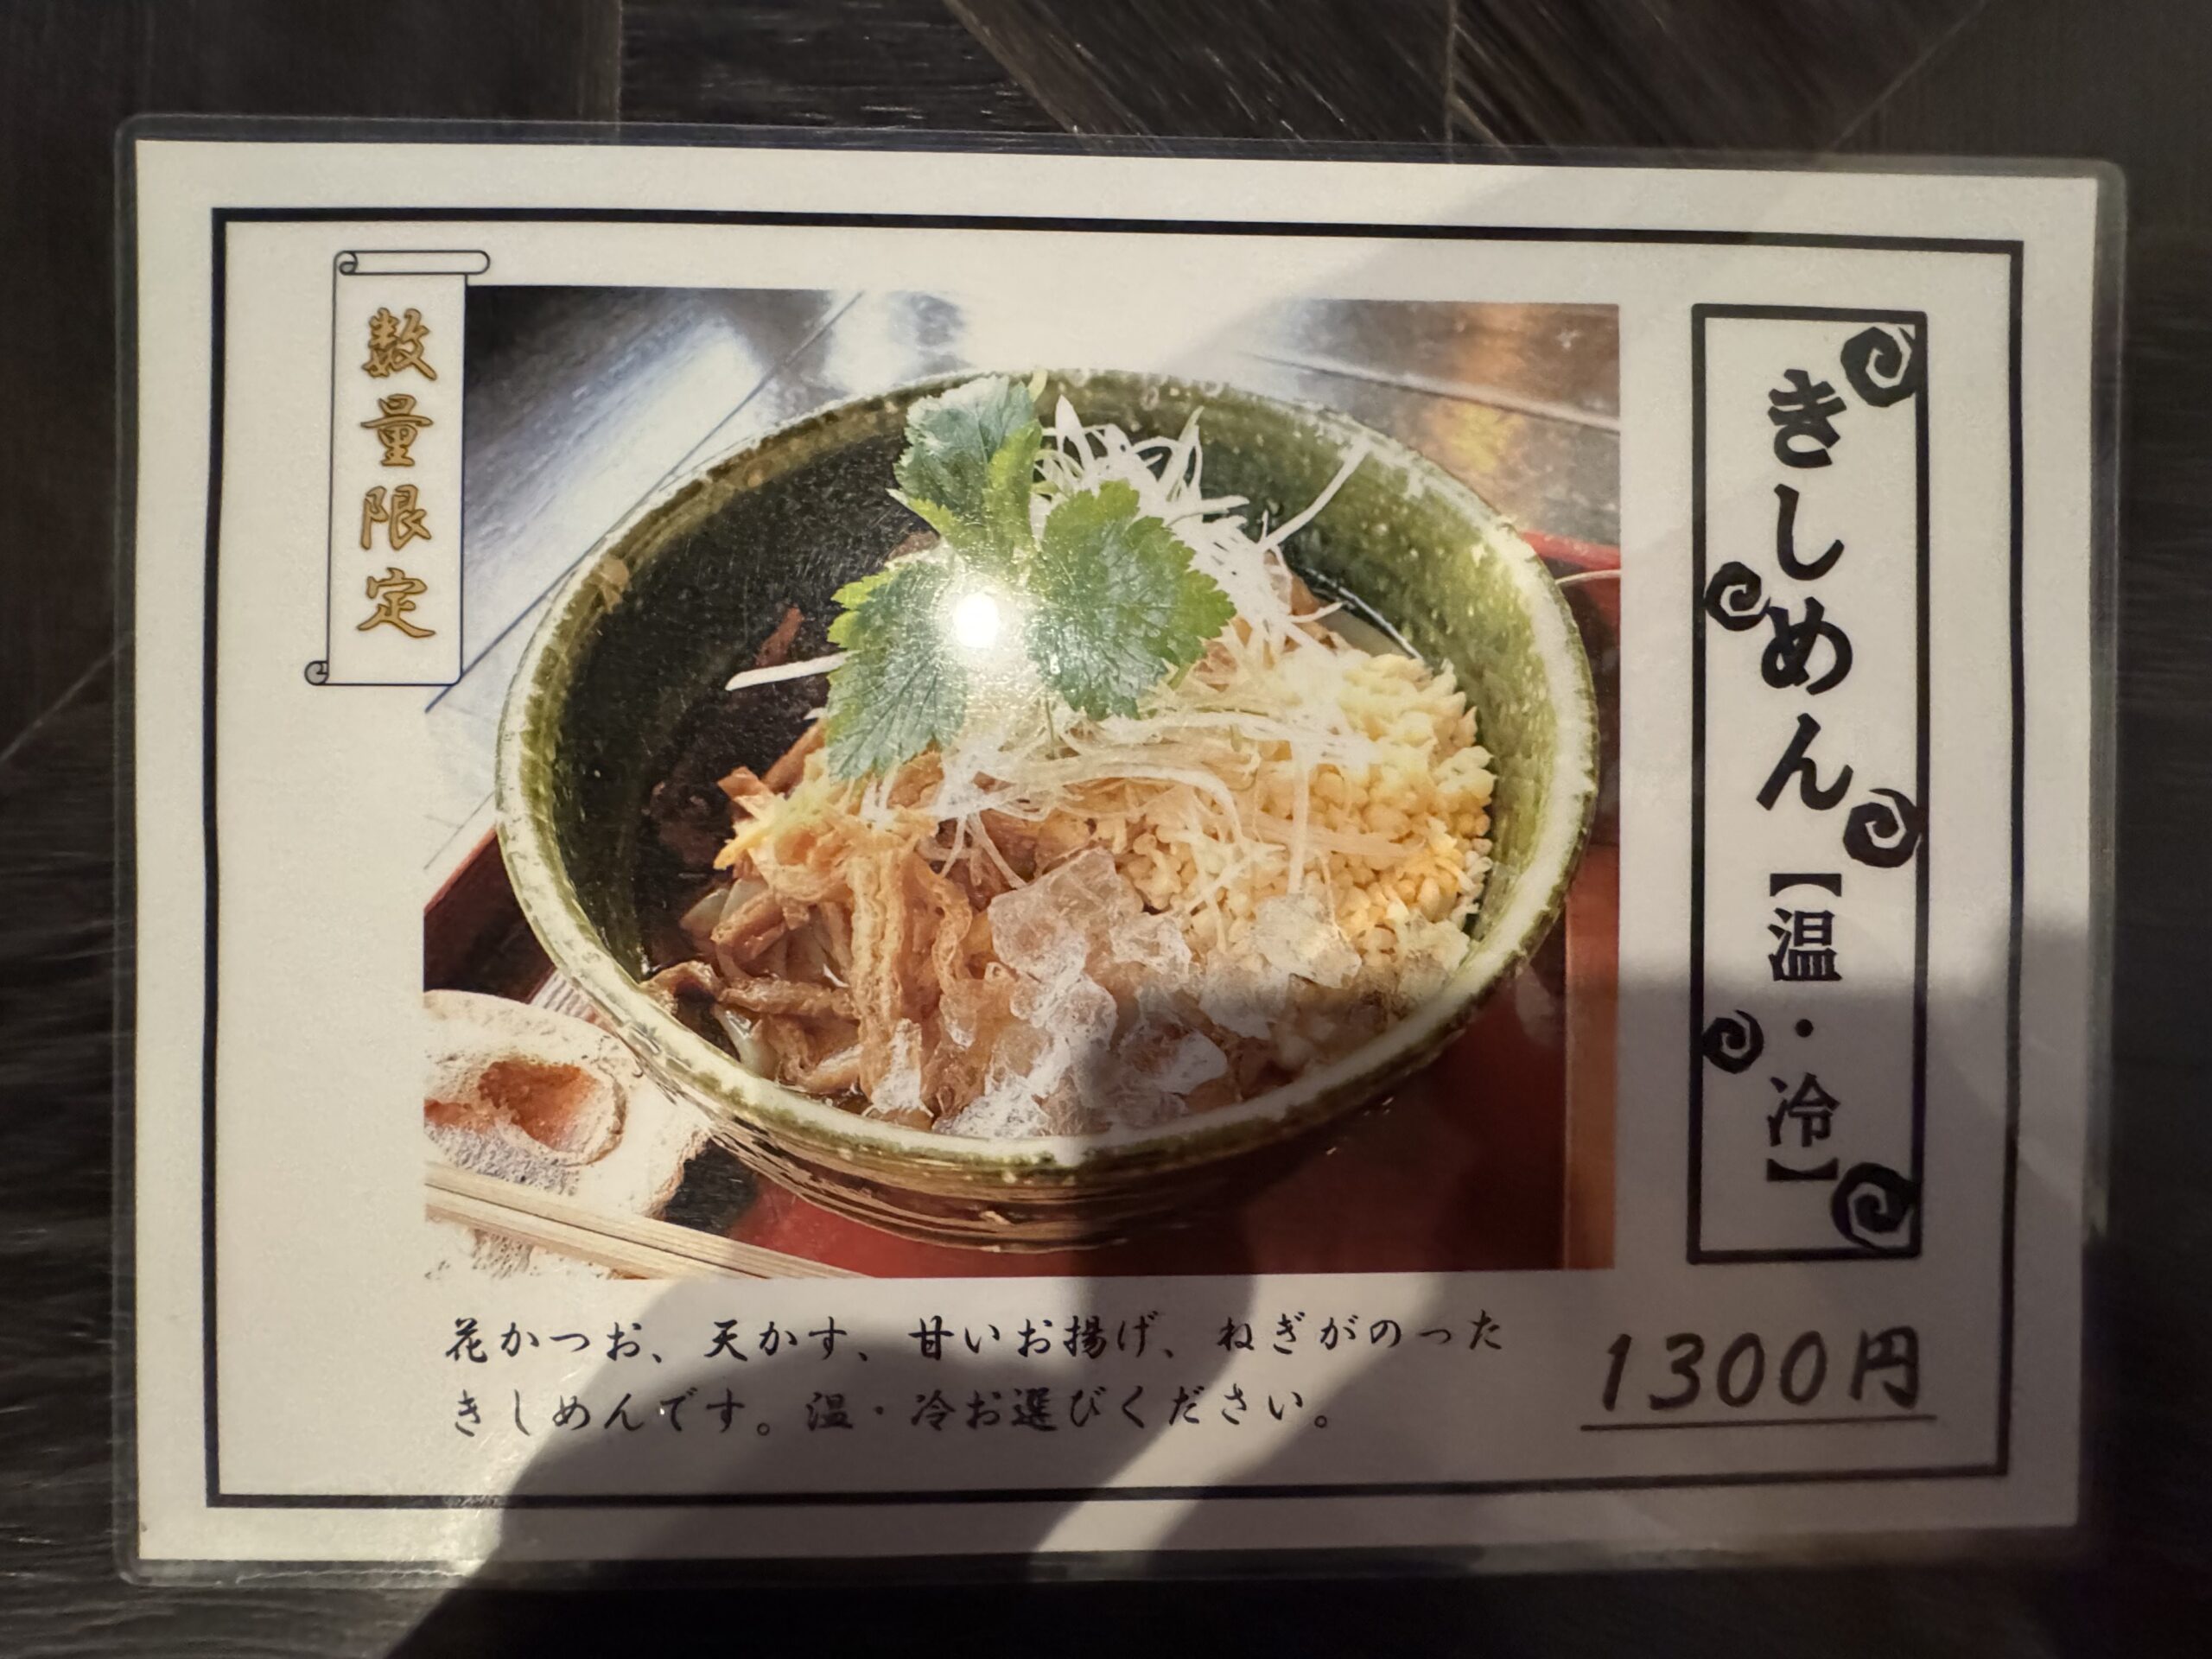 きしめん【温・冷】
数量限定
花かつお、天かす、甘いお揚げ、ねぎがのった
きしめんです。温・冷お選びください。
1300円